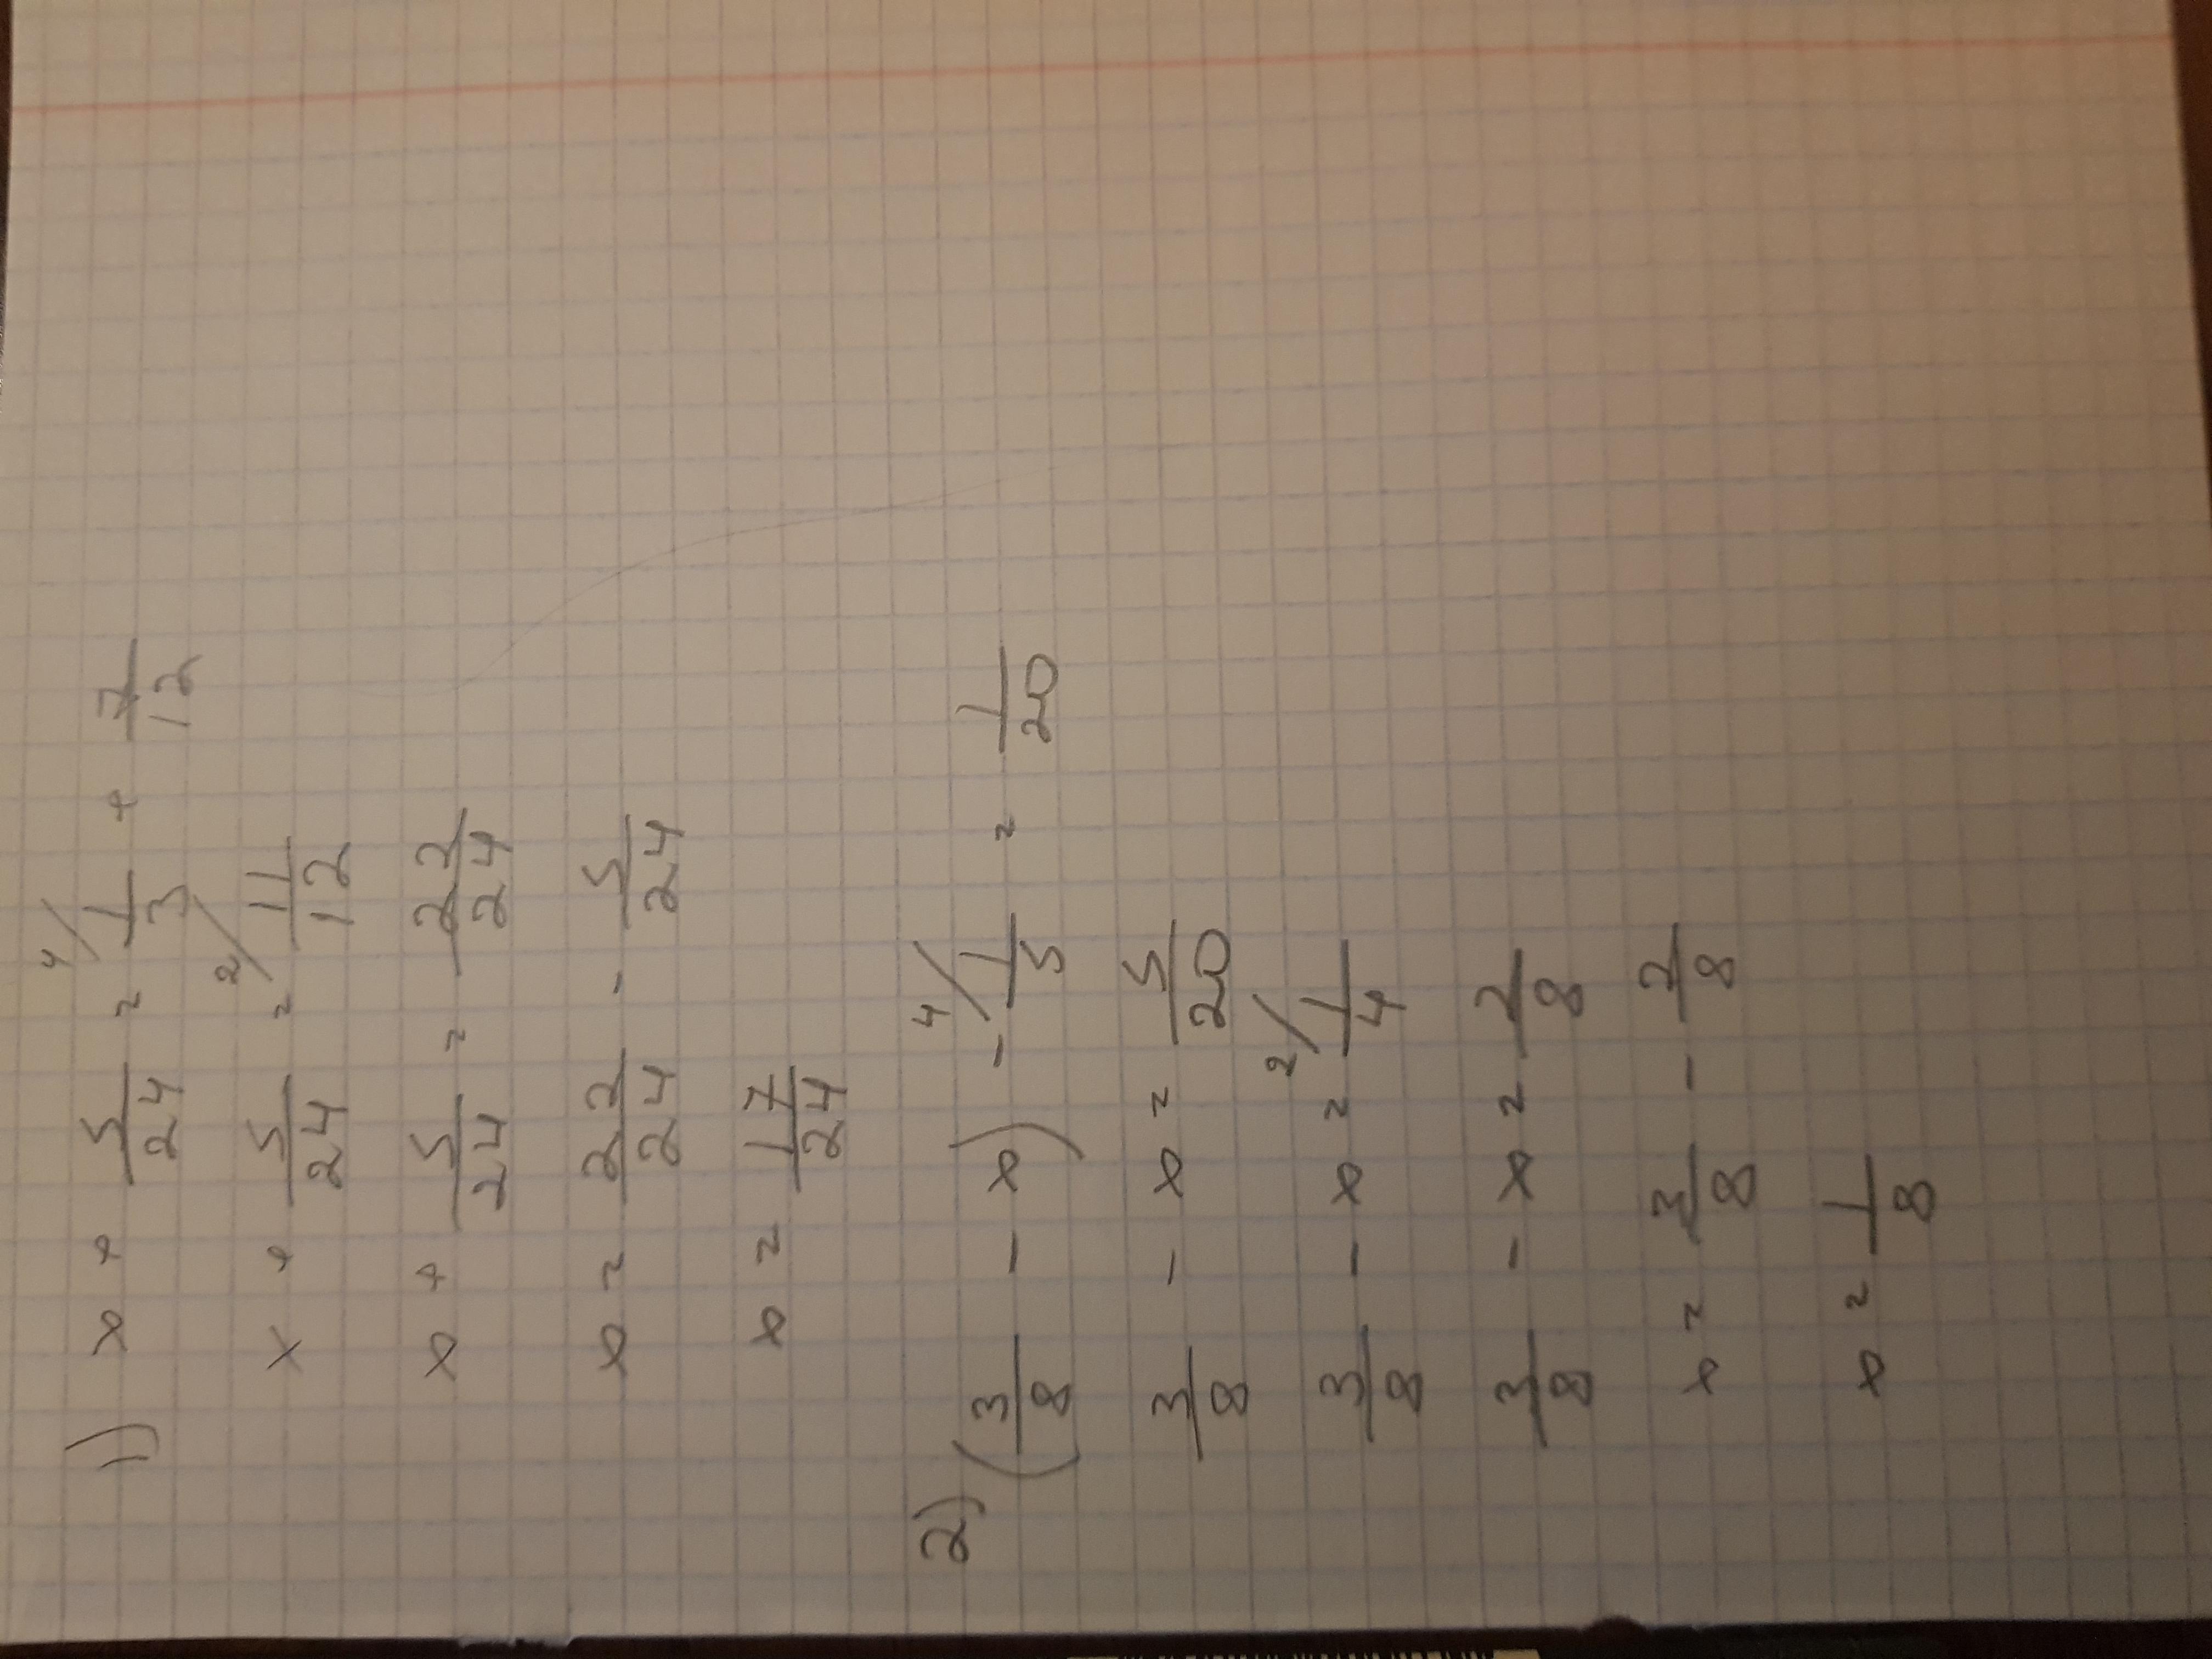 1) x + 5/24 = 4/ 1/3 + 7/12
x + 5/24 = 2/ 11/12
x + 5/24 = 22/24
x = 22/24 - 5/24
x = 17/24
2) (3/8 - x) - 4/ 1/5 = 1/20
3/8 - x = 5/20
3/8 - x = 2/ 1/4
3/8 - x = 2/8
x = 3/8 - 2/8
x = 1/8